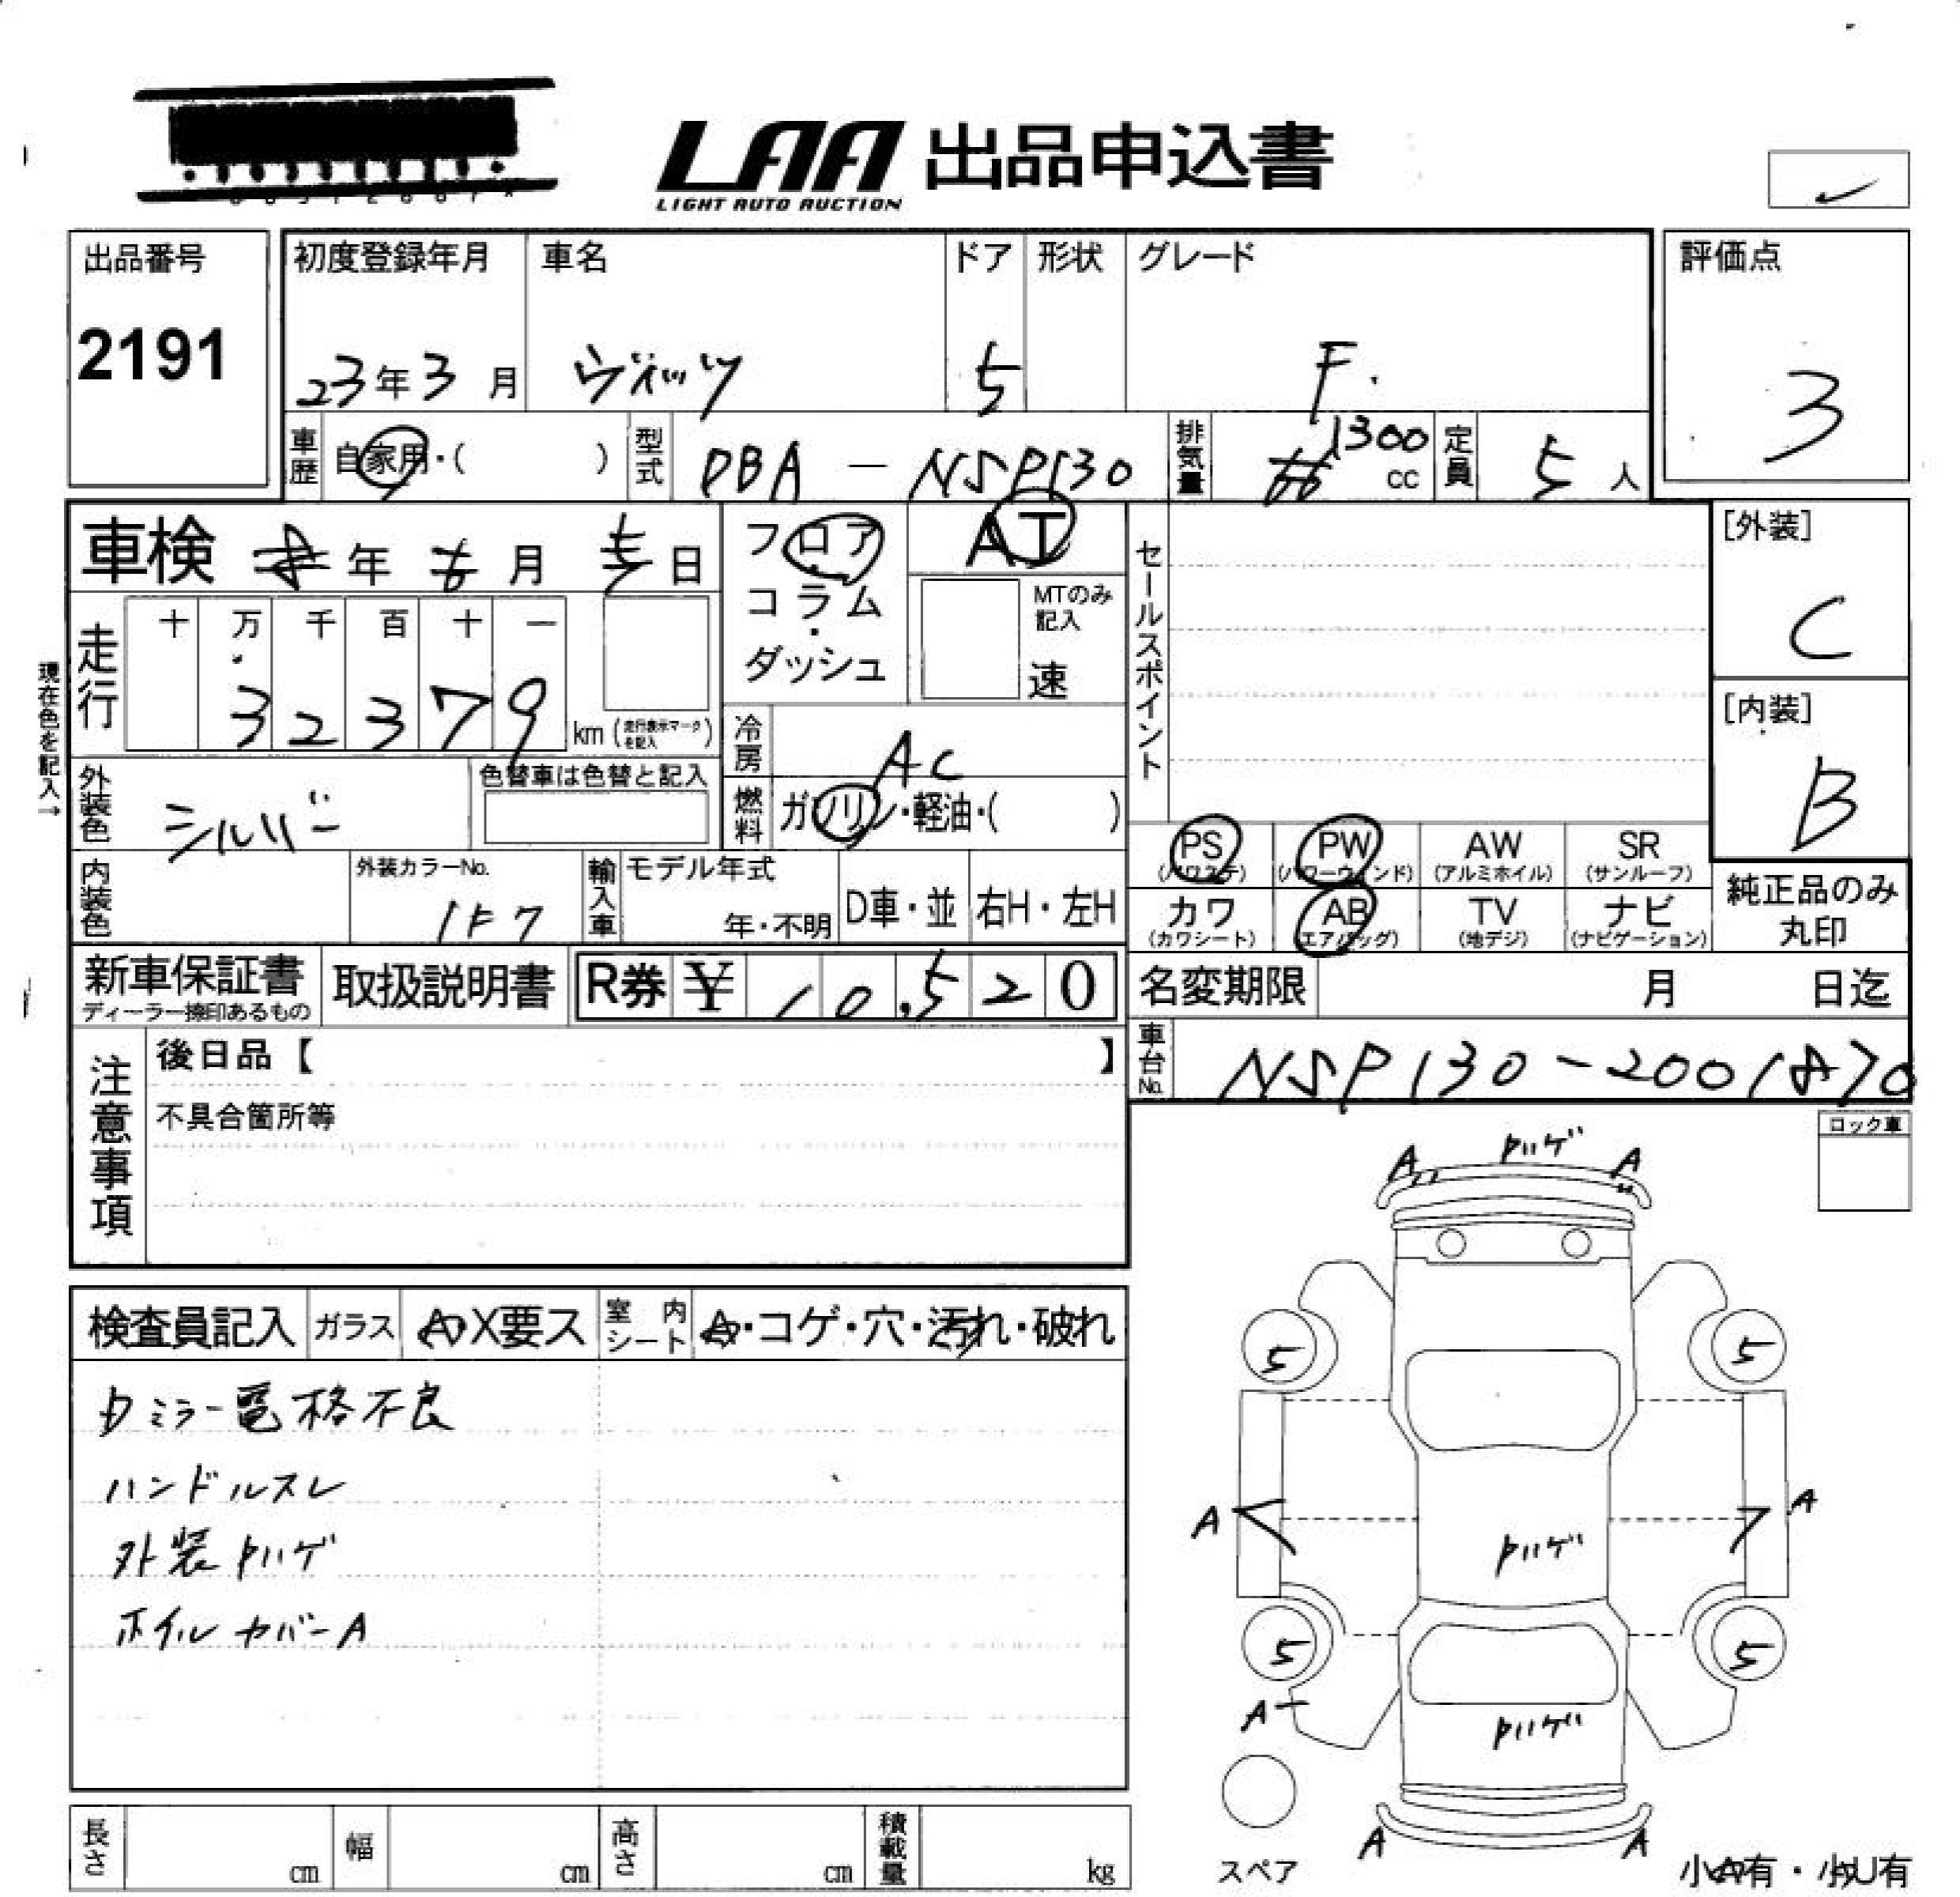 LAA 出品申込書
LIGHT AUTO AUCTION
出品番号
2191
初度登録年月
23年3月
車名
ヴィッツ
ドア
5
形状
グレード
F.
評価点
3
車歴
自家用・( )
型式
DBA - NSP130
排気量
1300
cc
定員
5人
車検 年 月 日
フロア
・
コラム
・
ダッシュ
AT
MTのみ
記入
速
セールスポイント
[外装]
C
[内装]
B
現在色を記入→
走行
十 万 千 百 十 一
3 2 3 7 9
km (走行表示マークを記入)
冷房
AC
外装色
シルバー
色替車は色替と記入
燃料
ガソリン・軽油・( )
PS
(パワステ)
PW
(パワーウィンド)
AW
(アルミホイル)
SR
(サンルーフ)
カワ
(カワシート)
AB
(エアバッグ)
TV
(地デジ)
ナビ
(ナビゲーション)
純正品のみ
丸印
内装色
外装カラーNo.
1F7
輸入車
モデル年式
年・不明
D車・並
右H・左H
新車保証書
ディーラー捺印あるもの
取扱説明書
R券 ¥ 10,520
名変期限 月 日迄
車台No.
NSP130-2001870
注意事項
後日品【 】
不具合箇所等
ロック車
検査員記入
ガラス
X要ス
室内
シート
・コゲ・穴・汚れ・破れ
ミラー電格不良
ハンドルスレ
外装ハゲ
ホイルカバーA
A ハゲ A
5 5
A A
ハゲ
5 5
A
ハゲ
A A
スペア
小A有・小U有
長さ cm
幅 cm
高さ cm
積載量 kg